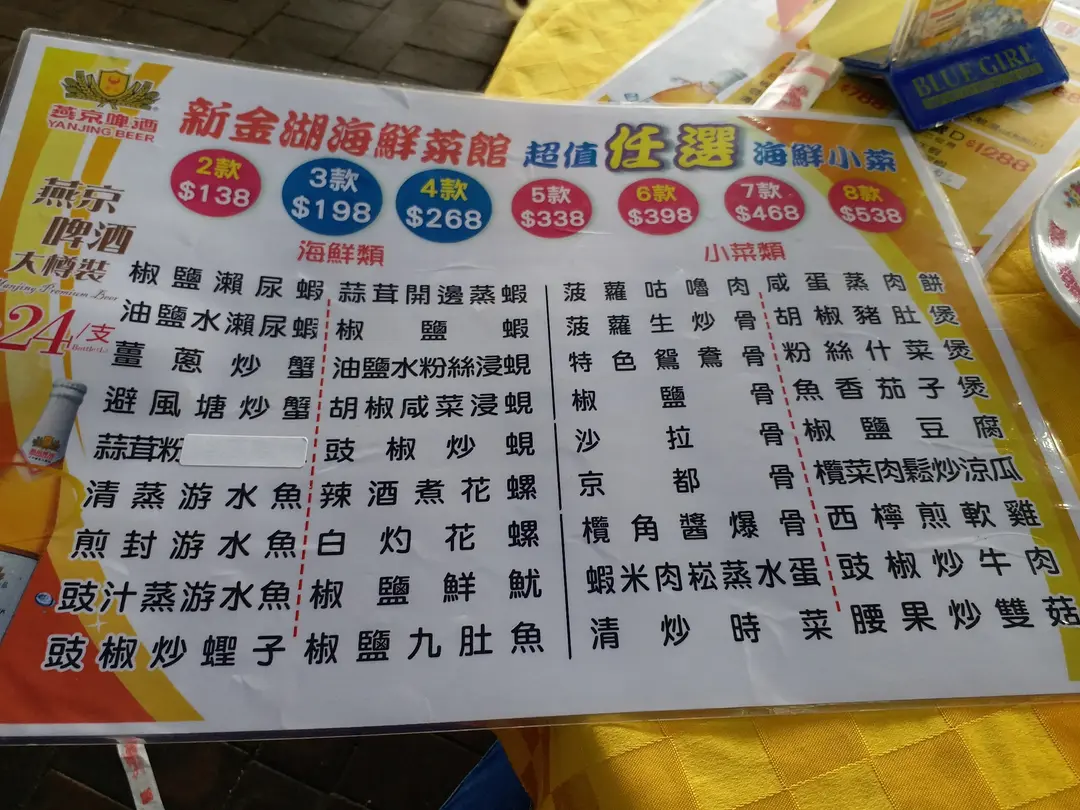 燕京啤酒
YANJING BEER
新金湖海鮮菜館 超值任選海鮮小菜
2款 $138
3款 $198
4款 $268
5款 $338
6款 $398
7款 $468
8款 $538
燕京
啤酒
大樽裝
Yanjing Premium Beer
24/支
海鮮類
椒鹽瀨尿蝦
油鹽水瀨尿蝦
薑蔥炒蟹
避風塘炒蟹
蒜茸粉
清蒸游水魚
煎封游水魚
豉汁蒸游水魚
豉椒炒蟶子
蒜茸開邊蒸蝦
椒鹽蝦
油鹽水粉絲浸蜆
胡椒咸菜浸蜆
豉椒炒蜆
辣酒煮花螺
白灼花螺
椒鹽鮮魷
椒鹽九肚魚
小菜類
菠蘿咕嚕肉
菠蘿生炒骨
特色鴛鴦骨
椒鹽骨
沙拉骨
京都骨
欖角醬爆骨
蝦米肉崧蒸水蛋
清炒時菜
咸蛋蒸肉餅
胡椒豬肚煲
粉絲什菜煲
魚香茄子煲
椒鹽豆腐
欖菜肉鬆炒涼瓜
西檸煎軟雞
豉椒炒牛肉
腰果炒雙菇
BLUE GIRL
$788
$1288